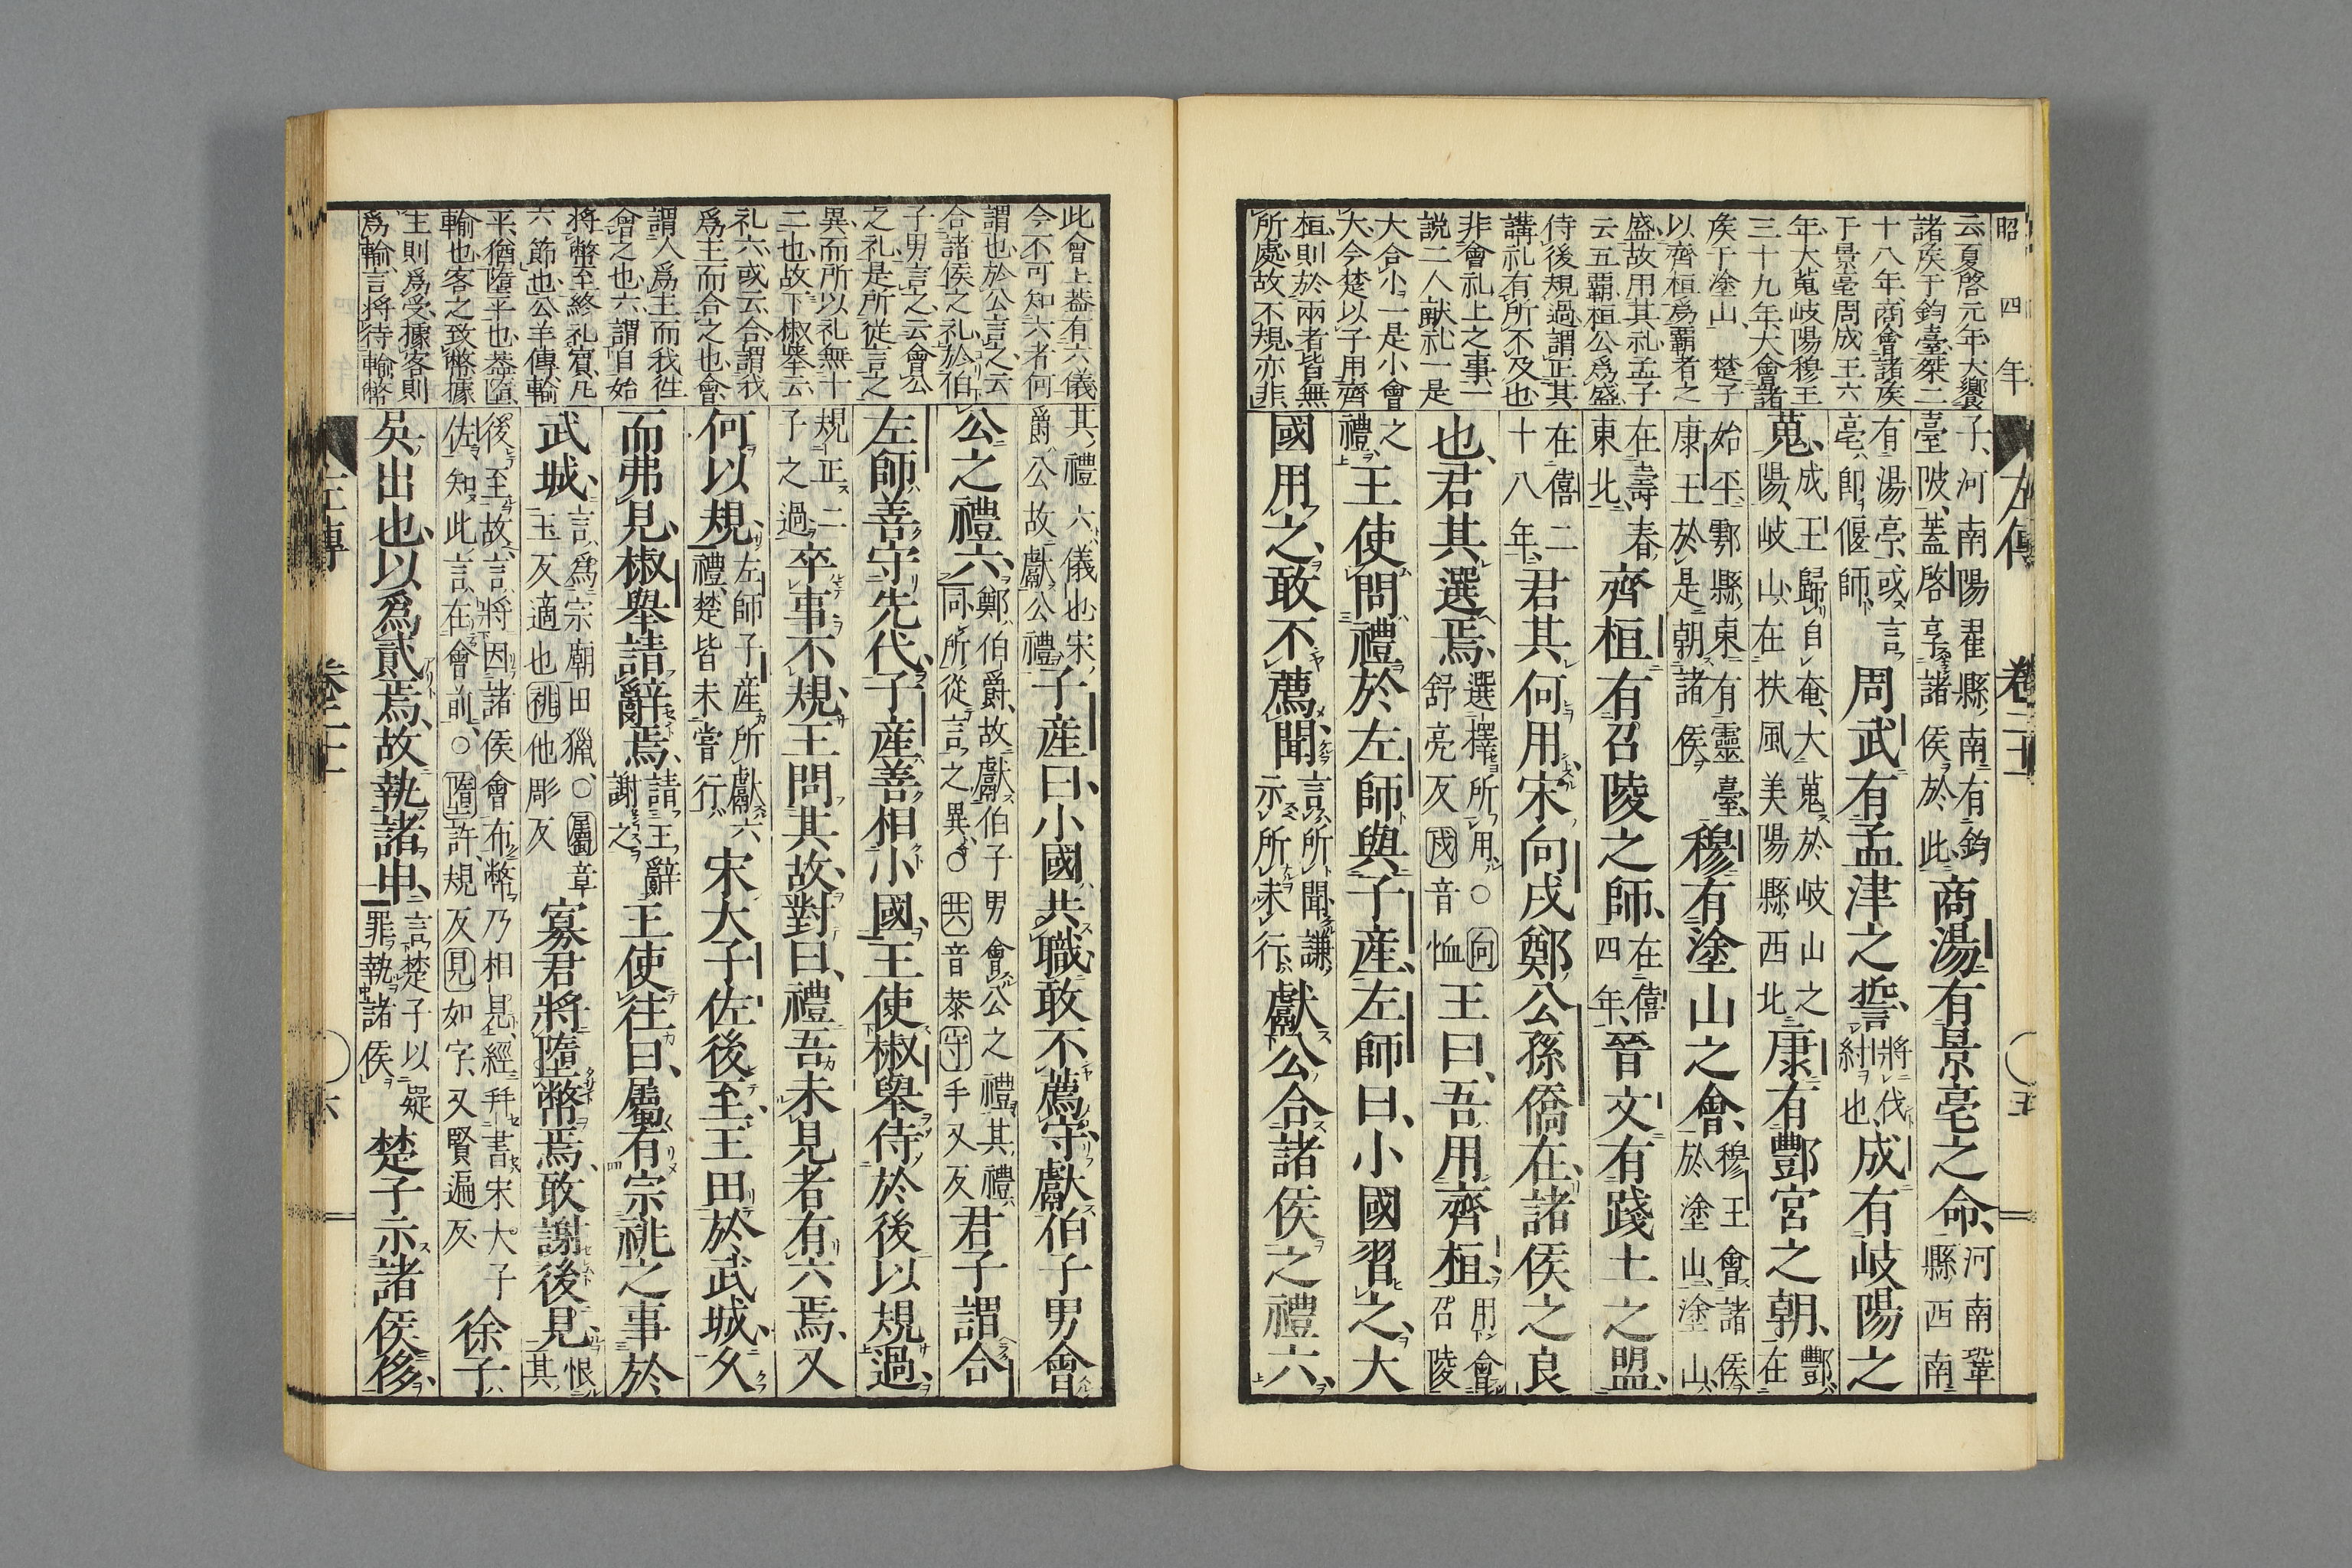 昭四年
左傳 卷二十一 五
云夏啓元年大饗
諸侯于鈞臺桀二
十八年商會諸侯
于景亳周成王六
年大蒐岐陽穆王
三十九年大會諸
侯于塗山 楚子
以齊桓爲覇者之
盛故用其礼孟子
云五覇桓公爲盛
侍後規過謂正其
講礼有所不及也
非會礼上之事一
説二人献礼一是
大合小一是小會
大今楚以子用齊
桓則於兩者皆無
所處故不規亦非
子河南陽翟縣南有鈞臺陂蓋啓享諸侯於此商湯有景亳之命河南鞏縣西南
有湯亭或言亳即偃師周武有孟津之誓將伐紂也成有岐陽之
蒐成王歸自奄大蒐於岐山之陽岐山在扶風美陽縣西北康有酆宮之朝酆在
始平鄠縣東有靈臺康王於是朝諸侯穆有塗山之會穆王會諸侯於塗山塗山
在壽春東北齊桓有召陵之師在僖四年晉文有踐土之盟
在僖二十八年君其何用宋向戌鄭公孫僑在諸侯之良
也君其選焉選擇所用○向舒亮反戌音恤王曰吾用齊桓用會召陵
之禮王使問禮於左師與子產左師曰小國習之大
國用之敢不薦聞言所聞謙示所未行獻公合諸侯之禮六
此會上蓋有六儀
今不可知六者何
謂也於公言之云
合諸侯之礼於伯
子男言之云會公
之礼是所從言之
異而所以礼無十
二也故下椒擧云
礼六或云合謂我
爲主而合之也會
謂人爲主而我徃
會之也六謂自始
將幣至終礼賓凡
六節也公羊傳輸
平猶墮平也蓋墮
輸也客之致幣據
主則爲受據客則
爲輸言將待輸幣
其禮六儀也宋爵公故獻公禮子產曰小國共職敢不薦守獻伯子男會
公之禮六鄭伯爵故獻伯子男會公之禮其禮同所從言之異○共音恭守手又反君子謂合
左師善守先代子產善相小國王使椒舉侍於後以規過
規正二子之過卒事不規王問其故對曰禮吾未見者有六焉又
何以規左師子產所獻六禮楚皆未嘗行宋大子佐後至王田於武城久
而弗見椒舉請辭焉請王辭謝之王使往曰屬有宗祧之事於
武城言爲宗廟田獵○屬章玉反適也祧他彫反寡君將墮幣焉敢謝後見恨其
後至故言將因諸侯會布幣乃相見經并書宋大子佐知此言在會前○墮許規反見如字又賢遍反徐子
吳出也以爲貳焉故執諸申言楚子以疑罪執諸侯楚子示諸侯侈
左傳 卷二十一 六